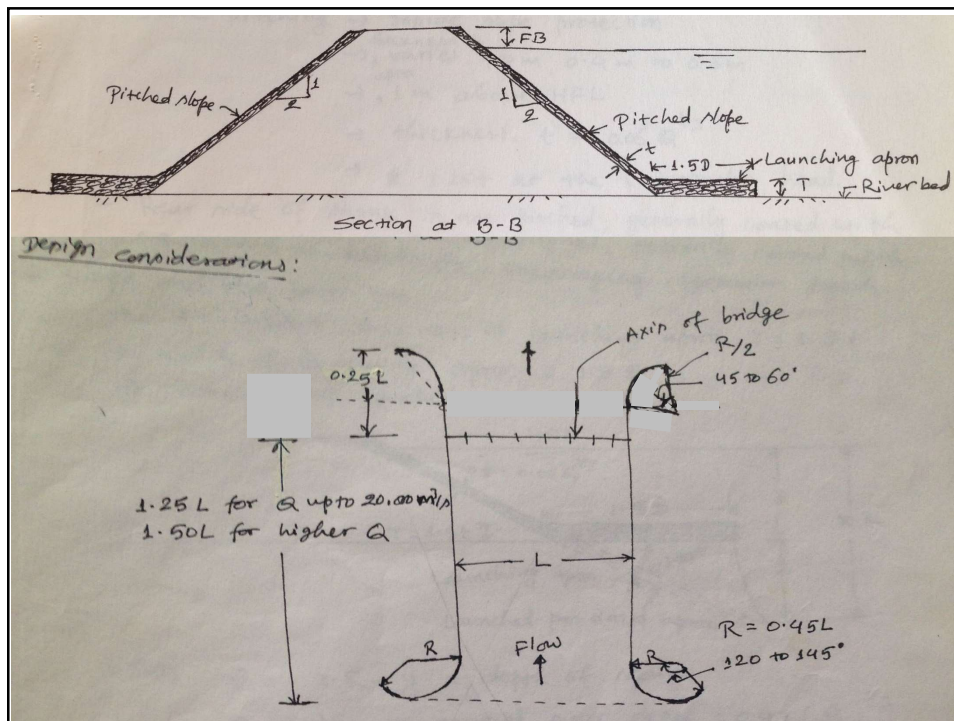 FB
1
2
1
2
Pitched slope
Pitched slope
t
1.5D
Launching apron
T
River bed
Section at B-B
Design considerations:
Axis of bridge
R/2
45 to 60°
0.25L
1.25 L for Q upto 20,000 m³/s
1.50L for higher Q
L
R = 0.45L
120 to 145°
R
Flow
R